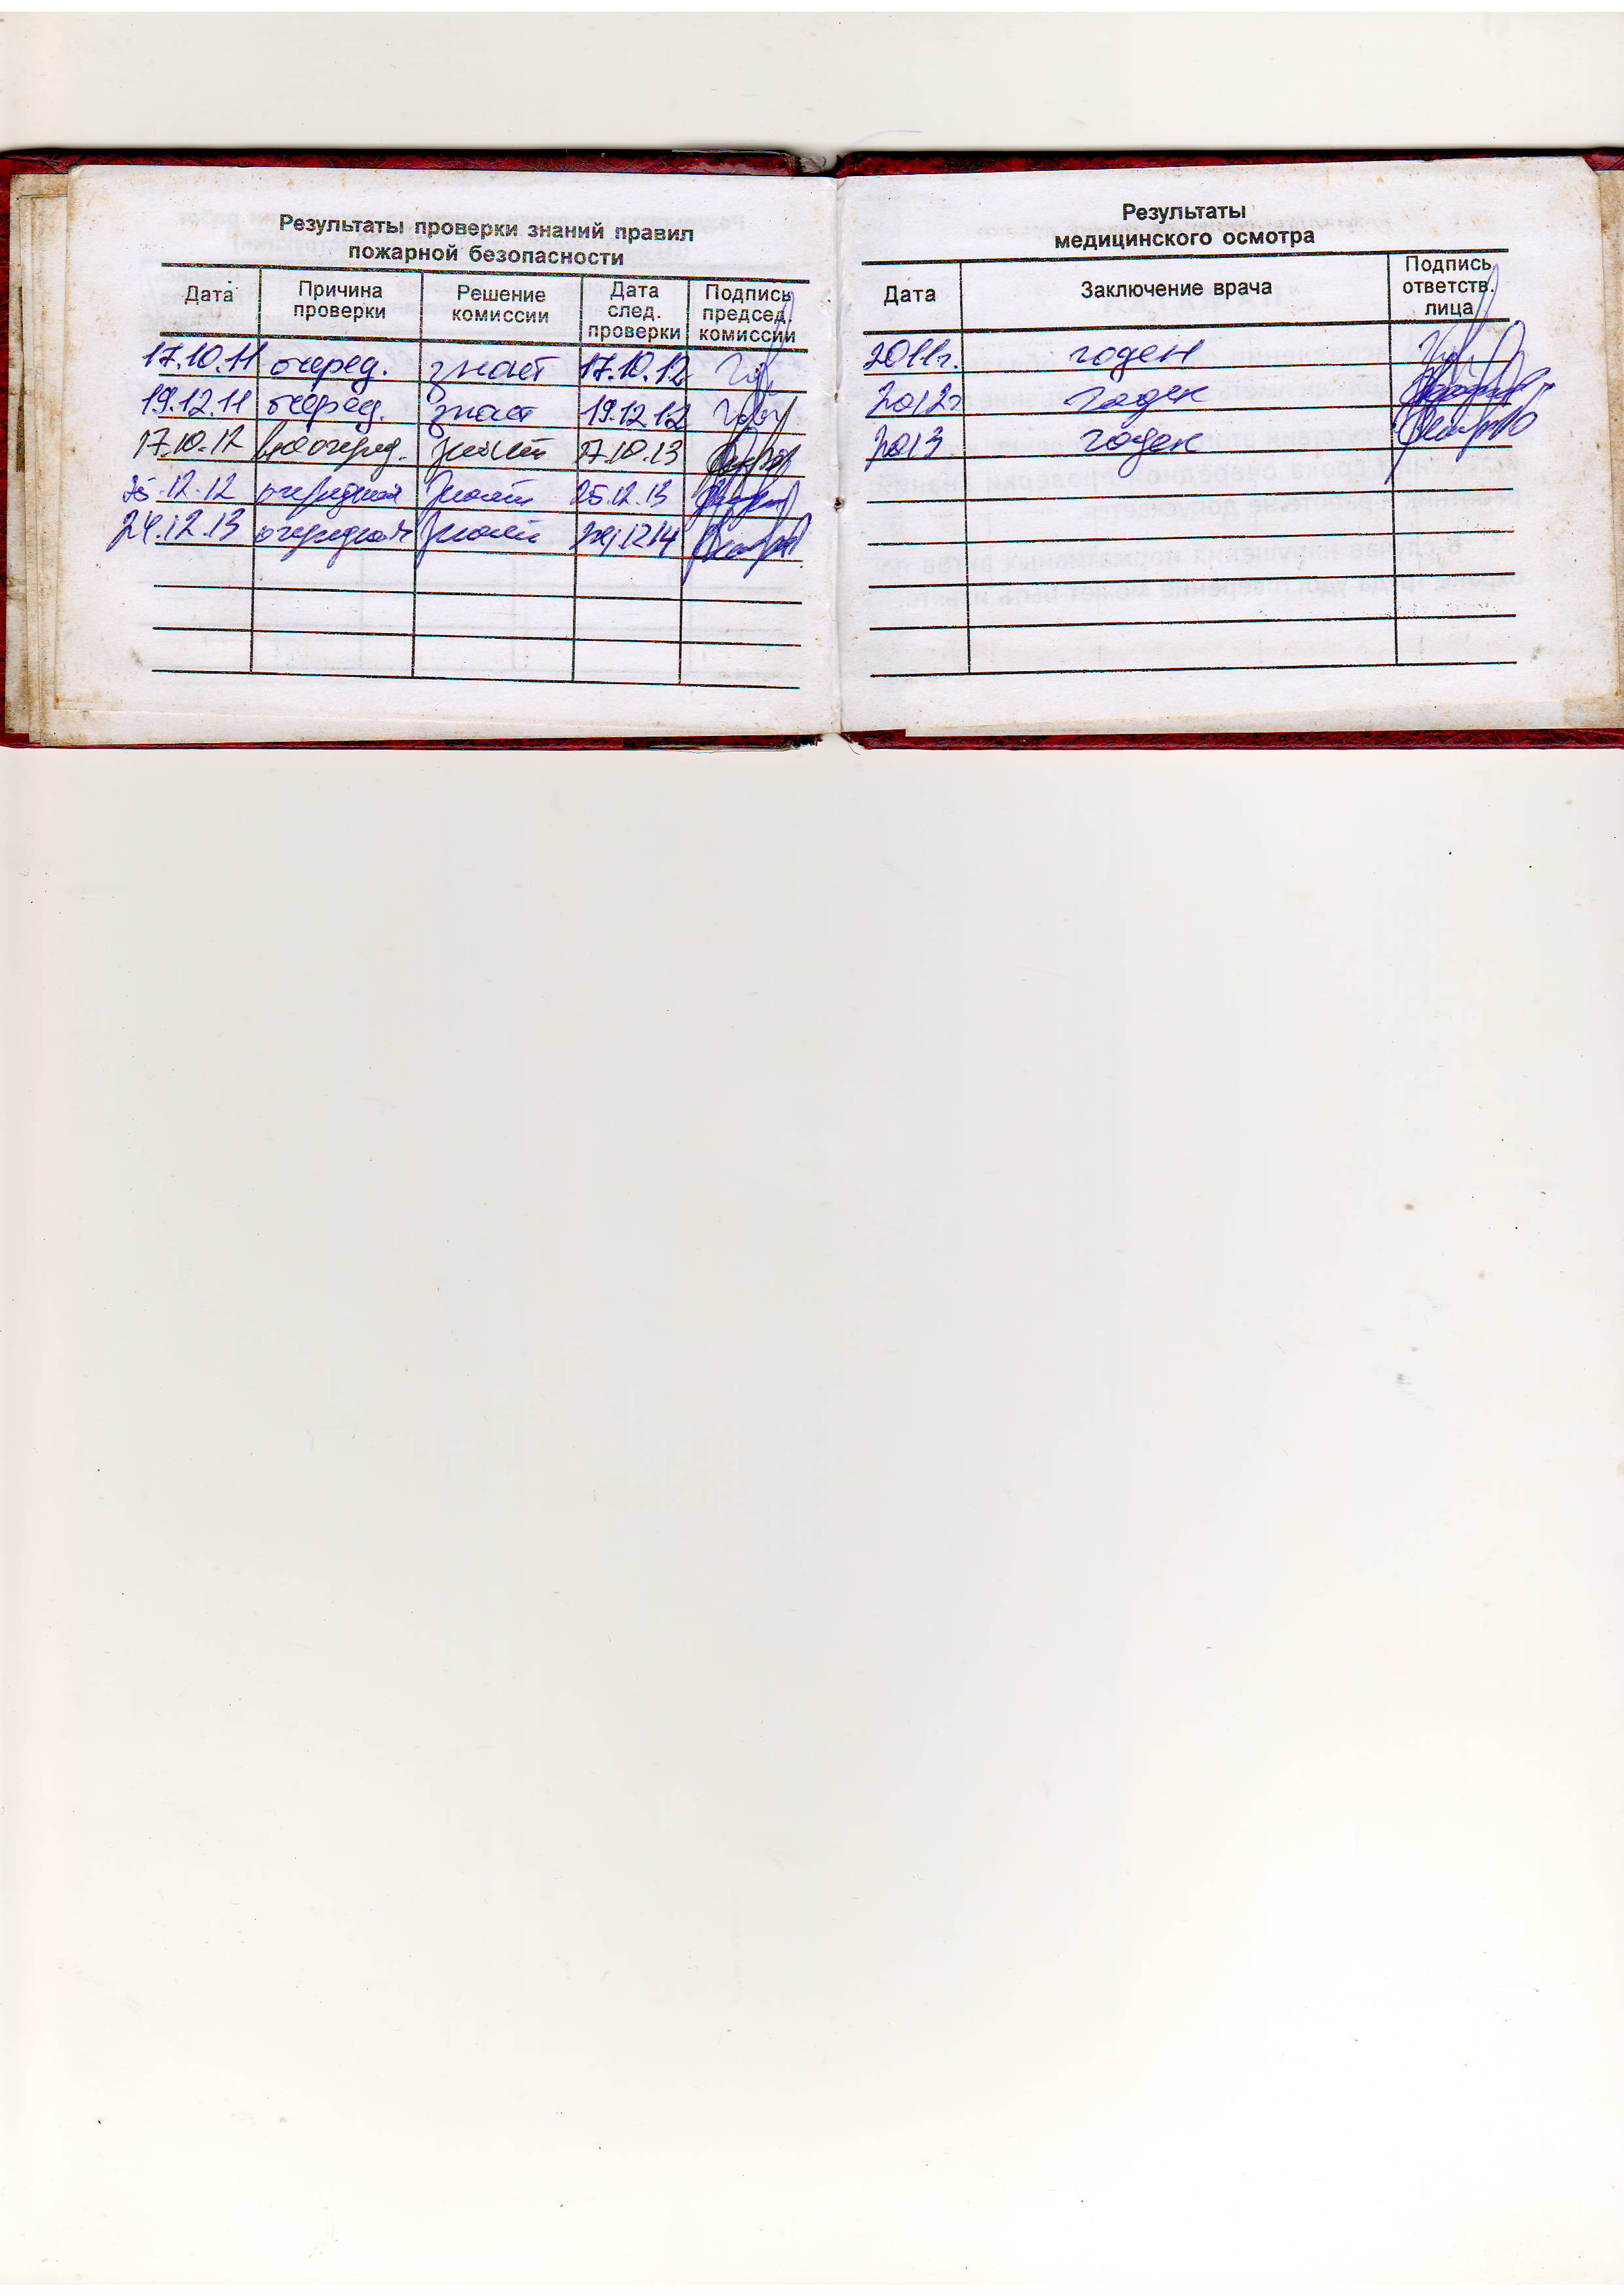 Результаты проверки знаний правил
пожарной безопасности
Дата Причина проверки Решение комиссии Дата след. проверки Подпись председ. комиссии
17.10.11 очеред. знает 17.10.12
19.12.11 очеред. знает 19.12.12
17.10.12 внеочеред. знает 17.10.13
25.12.12 очередная знает 25.12.13
24.12.13 очередная знает 24.12.14
Результаты
медицинского осмотра
Дата Заключение врача Подпись ответств. лица
2011г. годен
2012г годен
2013 годен